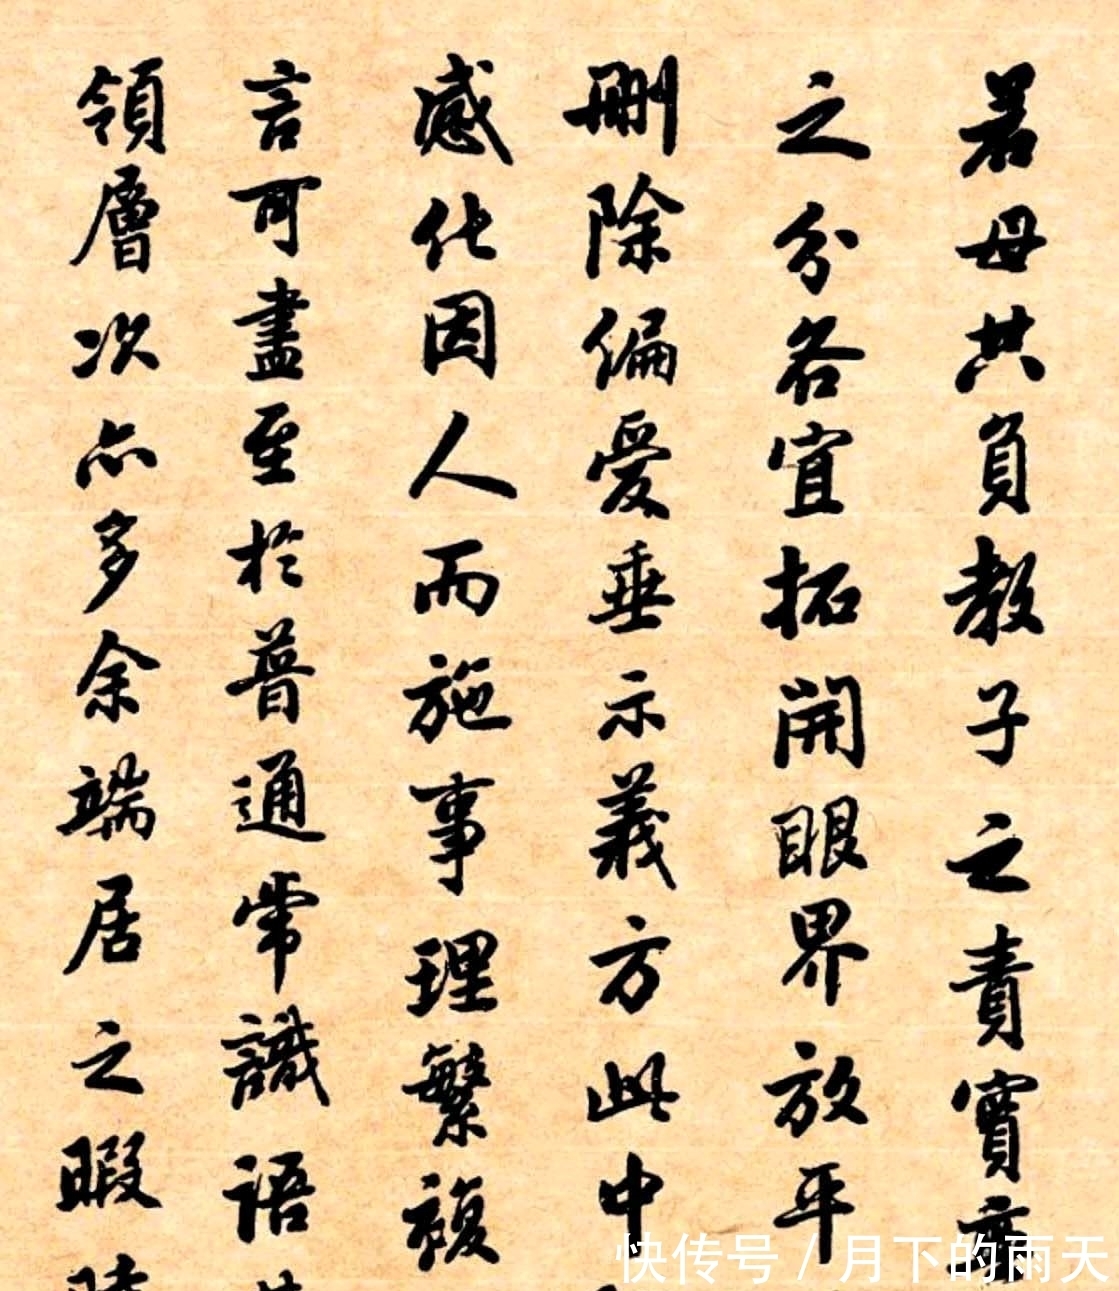 若母共負教子之責實無
之分各宜拓開眼界放平
刪除偏愛垂示義方此中
感化因人而施事理繁複
言可盡至於普通常識語
領層次亦多余端居之暇
快传号 / 月下的雨天